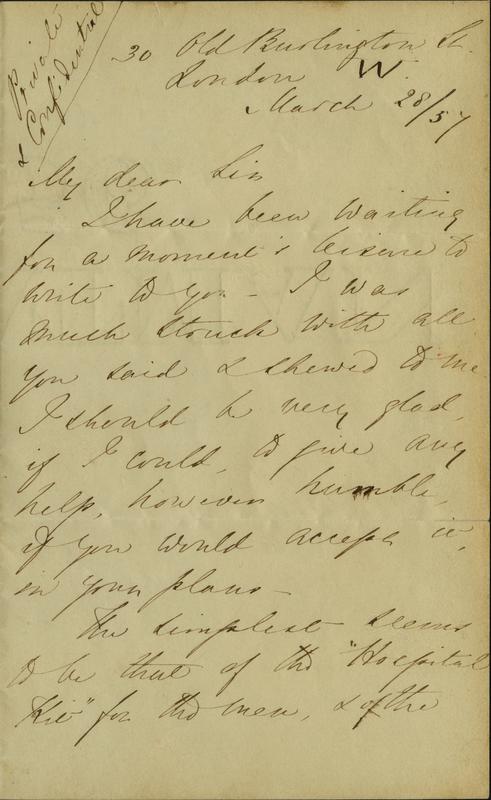 Private
& Confidential
30 Old Burlington St.
London W.
March 28/57
My dear Sir
I have been waiting
for a moment's leisure to
write to you - I was
much struck with all
you said & shewed to me.
I should be very glad,
if I could, to give any
help, however humble,
if you would accept it,
in your plans -
The simplest seems
to be that of the "Hospital
Kit" for the men, & of the